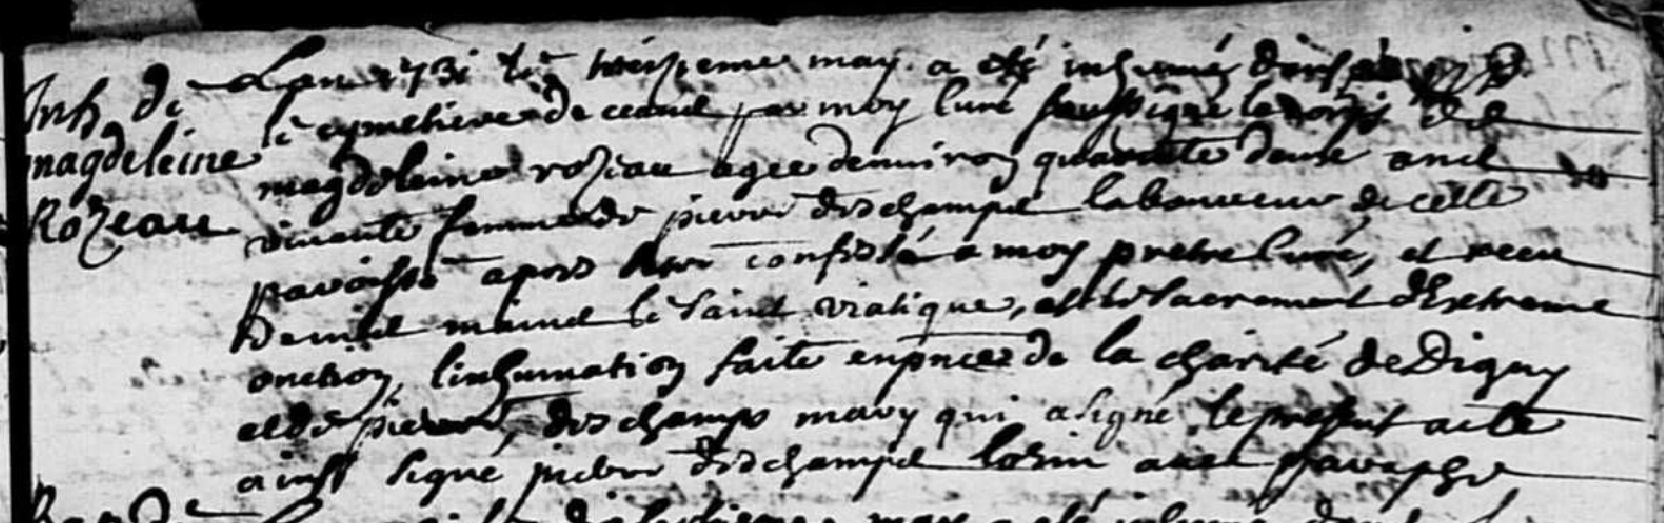 Inh de
magdeleine
Rozeau
Lan 1731 le treisieme may a esté inhumée dans
le cymetiere de ceans par moy curé soussigné le corps de
magdeleine rozeau agee denuiron quarante deux ans
viuante femme de pierre deschamps laboureur de cette
paroisse apres s'estre confessée a moy pretre curé, et receu
de mes mains le saint viatique, et le sacrement dExtreme
onction, linhumation faite en pnce de la charité de Digny
et de pierre deschamps mary qui a signé le present acte
ainsy signé pierre deschamps avec paraphe